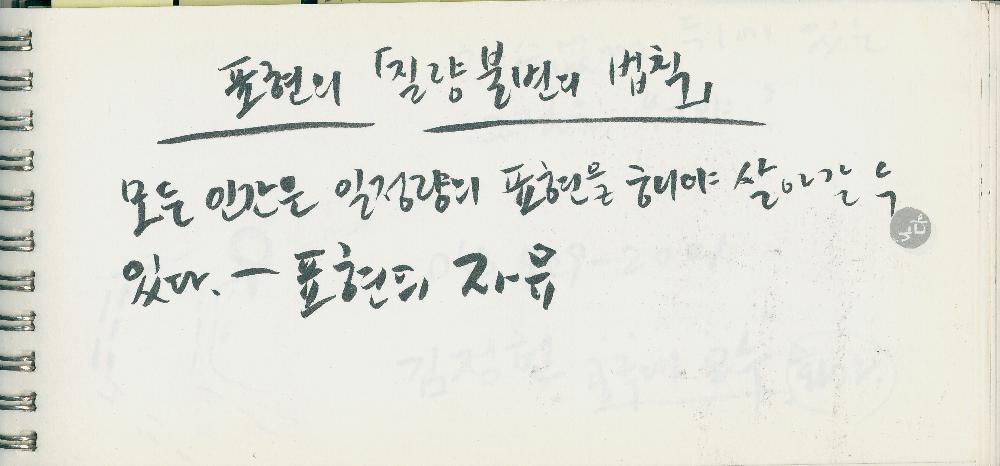 표현의 「질량불변의 법칙」
모든 인간은 일정량의 표현을 해야 살아갈 수
있다. — 표현의 자유